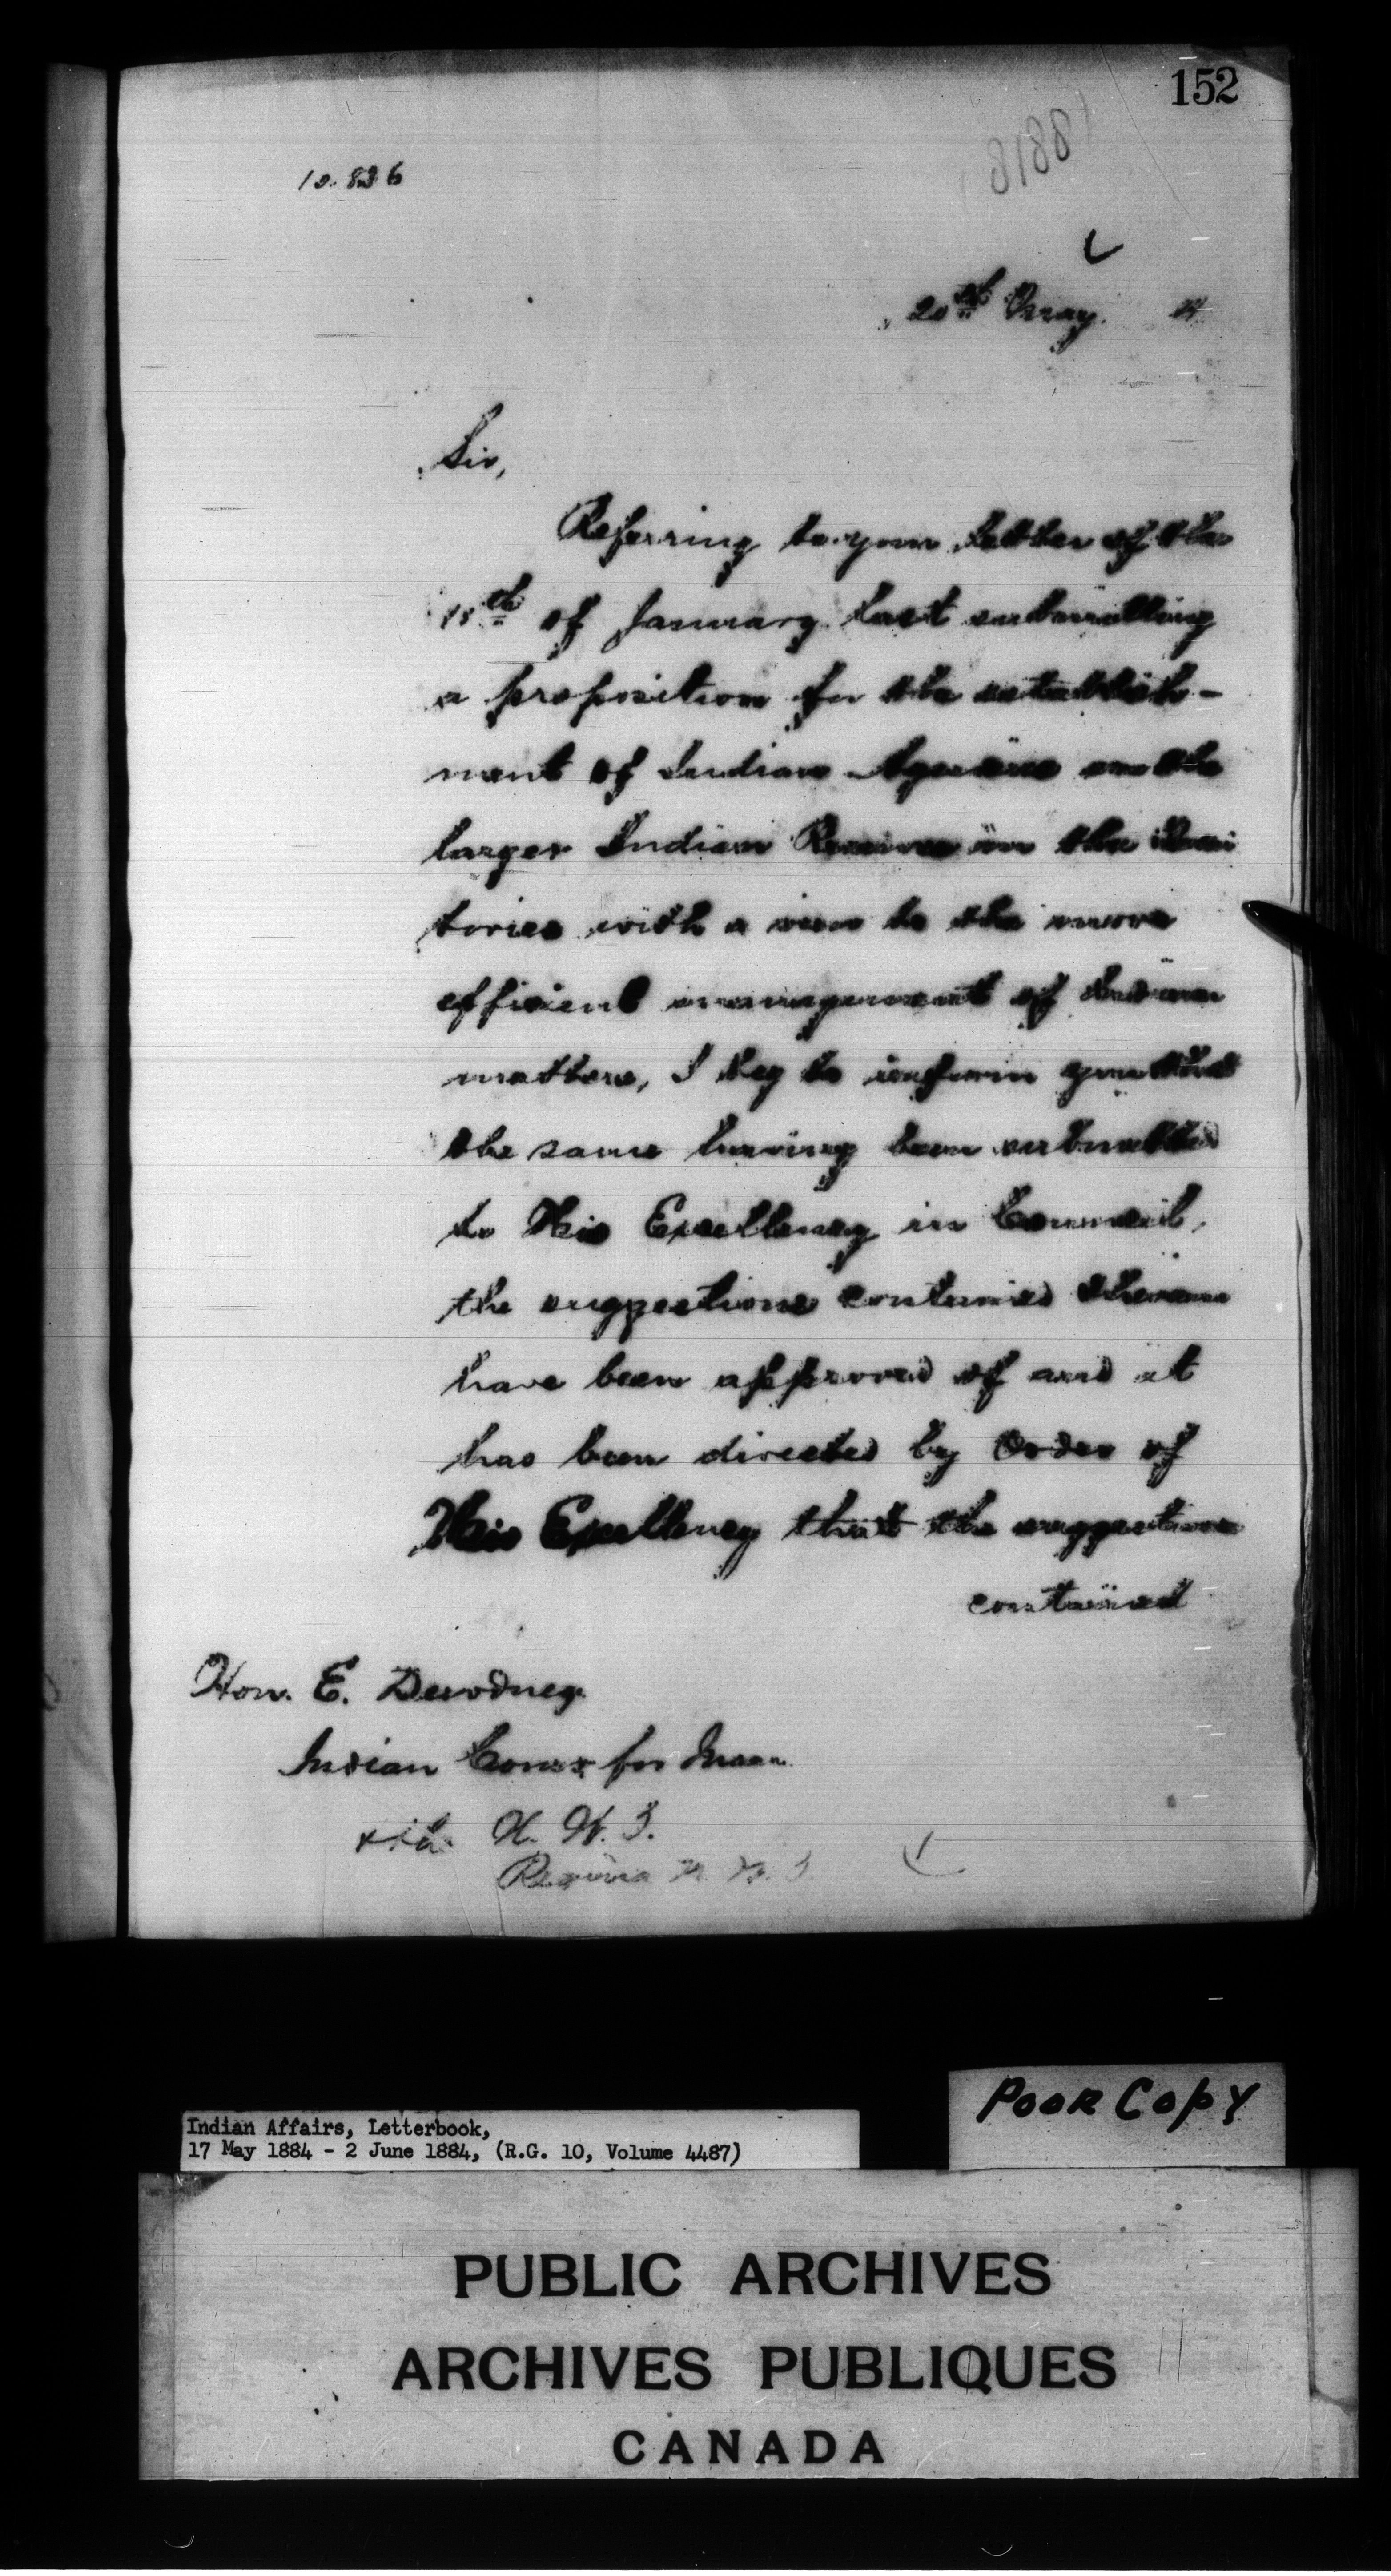 152
10.836
20th May.
Sir,
Referring to your letter of the
of January last submitting
a proposition for the establish-
ment of Indian Agencies on the
larger Indian Reserves in the Terri
tories with a view to the more
efficient management of Indian
matters, I beg to inform you that
the same having been submitted
to His Excellency in Council,
the suggestions contained therein
have been approved of and it
has been directed by Order of
His Excellency that the suggestions
contained
Hon. E. Dewdney
Indian Comr for
N. W. T.
Regina N. W. T.
Poor Copy
Indian Affairs, Letterbook,
17 May 1884 - 2 June 1884, (R.G. 10, Volume 4487)
PUBLIC ARCHIVES
ARCHIVES PUBLIQUES
CANADA